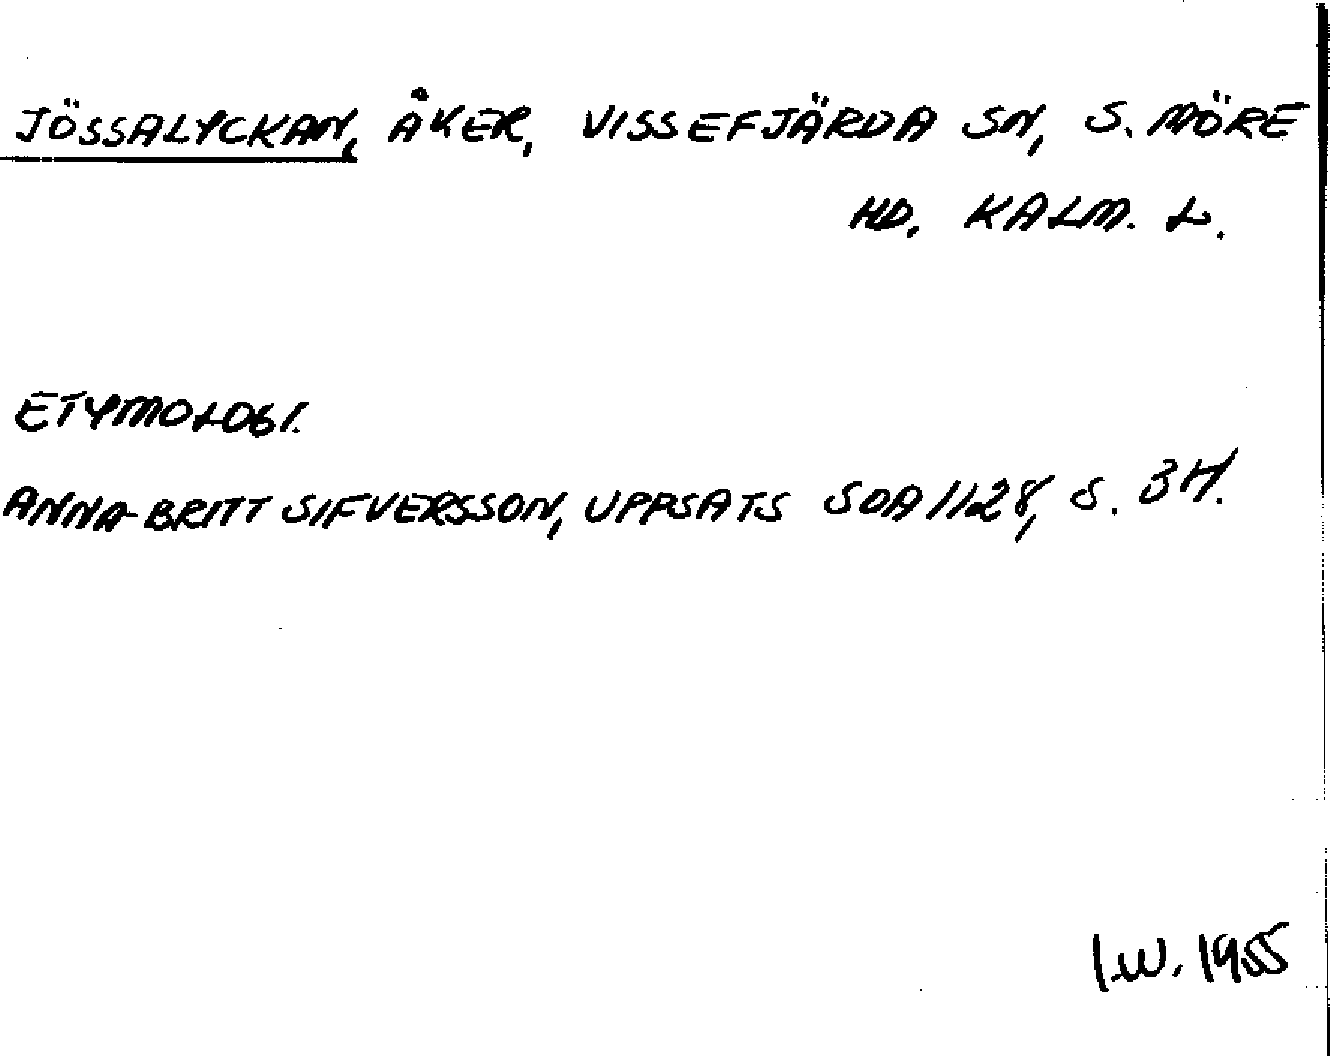 JÖSSALYCKAN, ÅKER, VISSEFJÄRDA SN, S. MÖRE
HD. KALM. L.
ETYMOLOGI.
ANNA-BRITT SIFVERSSON, UPPSATS SOA 1128, S. 34.
I.W. 1955